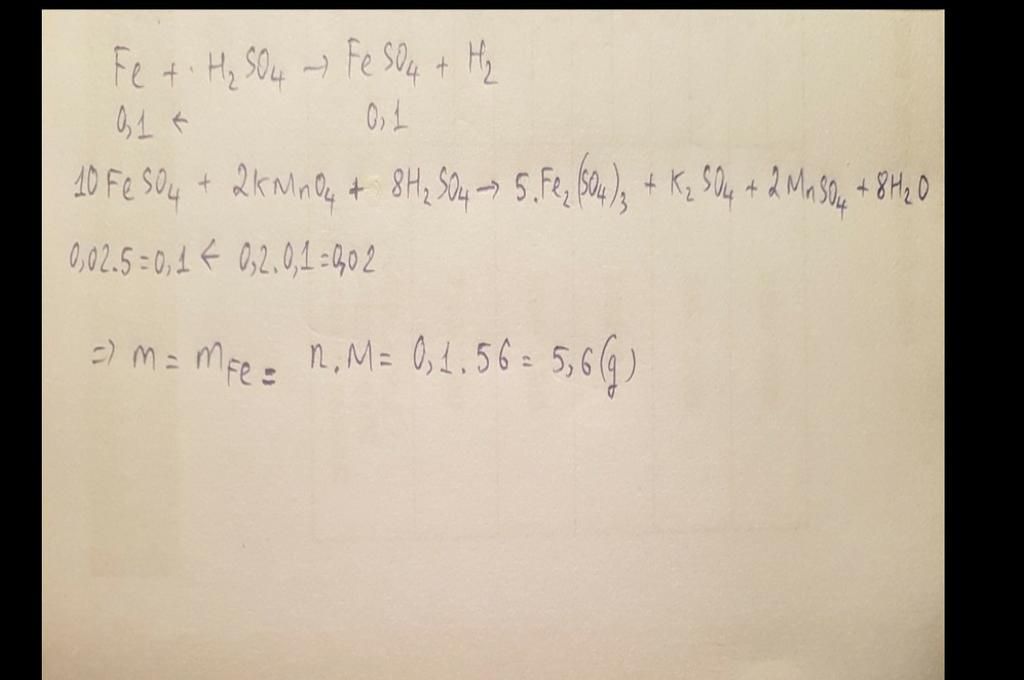 Fe + H₂SO₄ → FeSO₄ + H₂
0,1 ← 0,1
10FeSO₄ + 2KMnO₄ + 8H₂SO₄ → 5.Fe₂(SO₄)₃ + K₂SO₄ + 2MnSO₄ + 8H₂O
0,02.5=0,1 ← 0,2.0,1=0,02
=> m = mFe = n.M = 0,1.56 = 5,6(g)